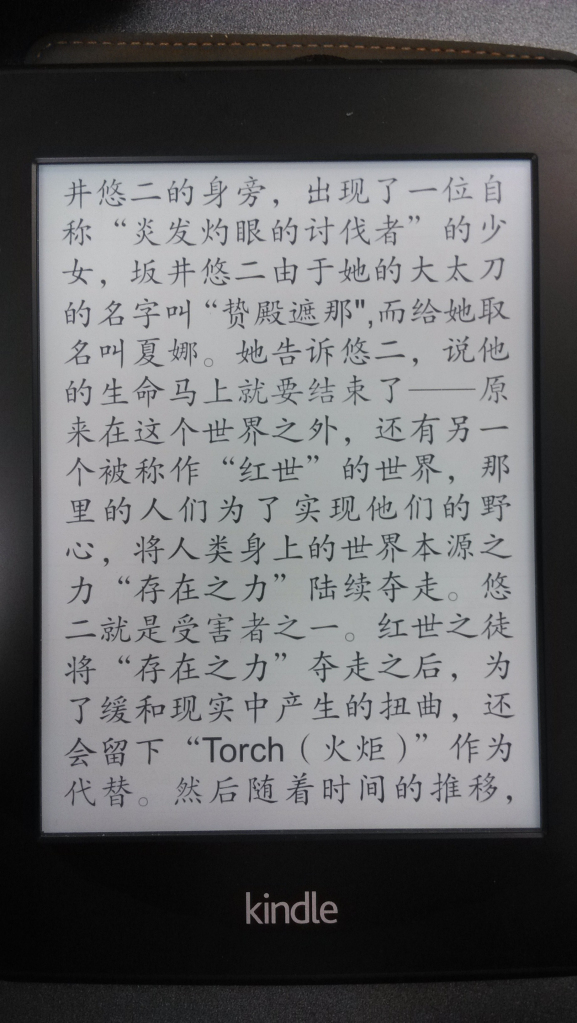 井悠二的身旁，出现了一位自
称“炎发灼眼的讨伐者”的少
女，坂井悠二由于她的大太刀
的名字叫“贽殿遮那",而给她取
名叫夏娜。她告诉悠二，说他
的生命马上就要结束了——原
来在这个世界之外，还有另一
个被称作“红世”的世界，那
里的人们为了实现他们的野
心，将人类身上的世界本源之
力“存在之力”陆续夺走。悠
二就是受害者之一。红世之徒
将“存在之力”夺走之后，为
了缓和现实中产生的扭曲，还
会留下“Torch（火炬）”作为
代替。然后随着时间的推移，
kindle